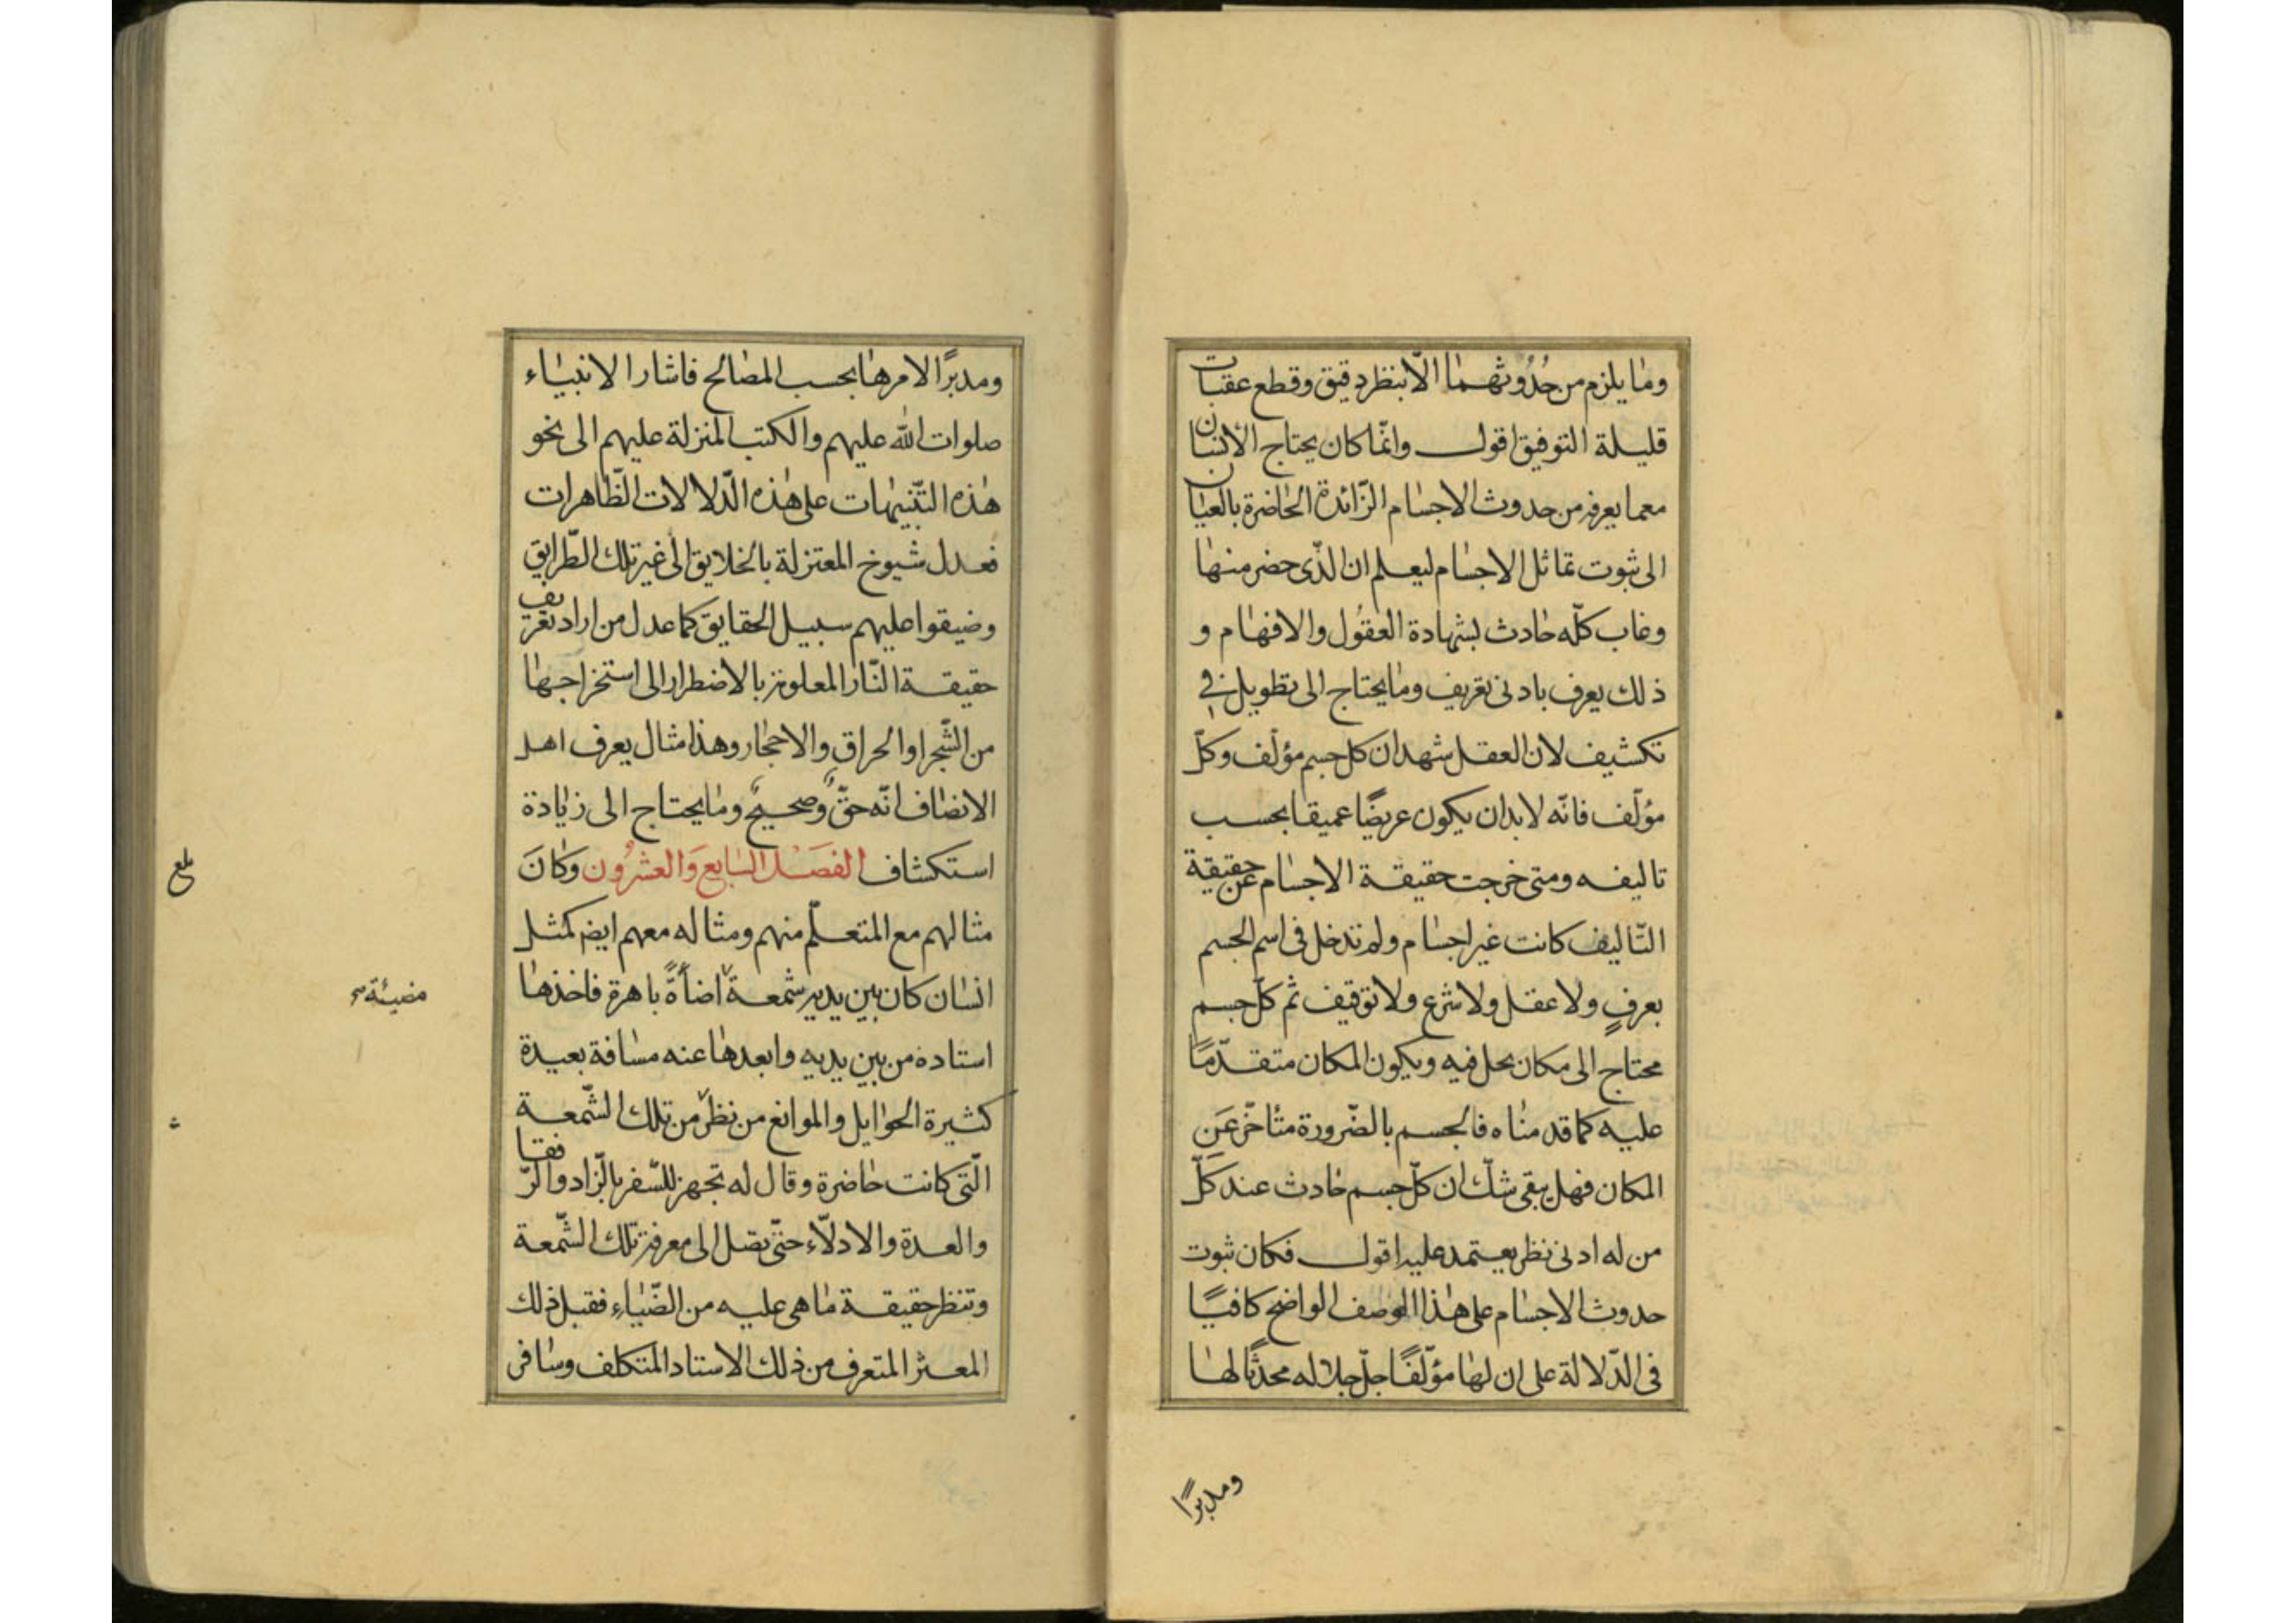 وما يلزم من حُدُوثهما الّا بنظر دقيق وقطع عقبات
قليلة التوفيق اقول وانّما كان يحتاج الأنسان
مع ما يعرفه من حدوث الاجسام الزّائدة الحاضرة بالعيان
الى ثبوت تماثل الاجسام ليعلم ان الّذى حضر منها
وغاب كلّه حادث بشهادة العقُول والافهام و
ذلك يعرف بادنى تعريف وما يحتاج الى تطويل فى
تكشيف لان العقل شهد ان كل جسم مؤلّف وكلّ
مؤلّف فانّه لابد ان يكون عريضًا عميقا بحسب
تاليفه ومتى خرجت حقيقة الاجسام عن حقيقة
التّاليف كانت غير اجسام ولم تدخل فى اسم الجسم
بعرفٍ ولا عقل ولا شرع ولا توقيف ثم كلّ جسم
محتاج الى مكان يحل فيه ويكون المكان متقدّمًا
عليه كما قدمناه فالجسم بالضّرورة متأخّر عَنِ
المكان فهل يبقى شكّ ان كلّ جسم حادث عند كلّ
من له ادنى نظر يعتمد عليه اقول فكان ثبوت
حدوث الاجسام على هذا الوصف الواضح كافيًا
فى الدّلالة على ان لها مؤلّفًا جلّ جلاله محدثًا لها
ومدبرًا
ومدبرًا لامرها بحسب المصالح فاشار الانبياء
صلوات الله عليهم والكتب المنزلة عليهم الى نحو
هذه التّنبيهات على هذه الدّلالات الظّاهرات
فعدل شيوخ المعتزلة بالخلايق الى غير تلك الطّرايق
وضيقوا عليهم سبيل الحقايق كما عدل من اراد تعريف
حقيقة النّار المعلومة بالاضطرار الى استخراجها
من الشّجر او الحراق والاحجار وهذا مثال يعرف اهل
الانصاف انّه حقٌّ وصحيحٌ وما يحتاج الى زيادة
استكشاف الفصل السابع وَالعشرُون وَكانَ
بلغ
مثالهم مع المتعلّم منهم ومثاله معهم ايضا كمثل
انسان كان بين يديه شمعة اضاءةً باهرة فاخذها
مضيئة صح
استاده من بين يديه وابعدها عنه مسافة بعيدة
كثيرة الحوايل والموانع من نظر من تلك الشّمعة
الّتى كانت حاضرة وقال له تجهز للسّفر بالزّاد والرّفقا
والعدة والادلّاء حتّى تصل الى معرفة تلك الشّمعة
وتنظر حقيقة ما هى عليه من الضّياء فقبل ذلك
المعثر المتعرف من ذلك الاستاد المتكلف وسافر